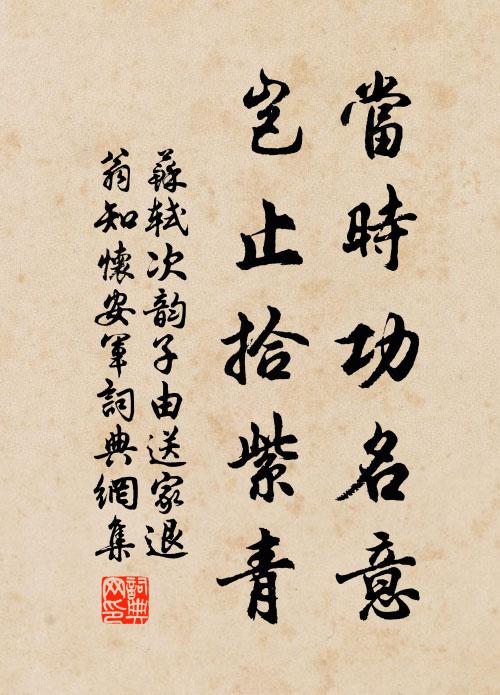 當時功名意
豈止拾紫青
蘇軾次韵子由送家退
翁知懷安軍詞典網集
詞典
网印